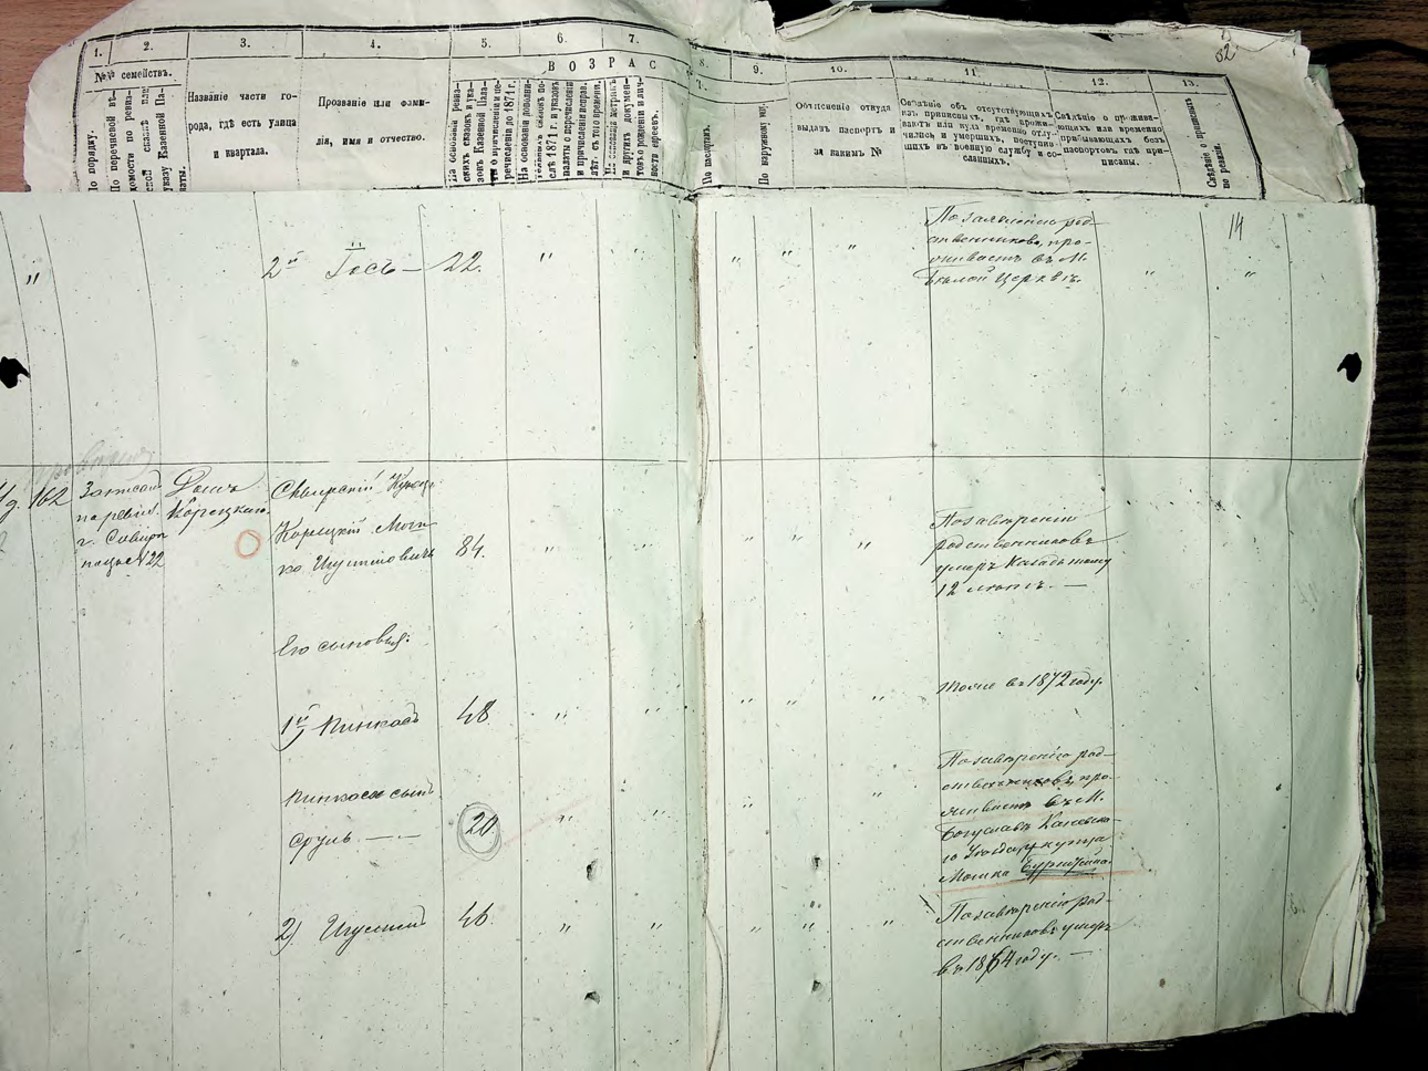 32
1. 2. 3. 4. 5. 6. 7. 8. 9. 10. 11. 12. 13.
№№ семействъ.
По порядку.
По перечневой вѣ-
домости по ревиз-
ской сказкѣ или
указу Казенной Па-
латы.
Названіе части го-
рода, гдѣ есть улица
и квартала.
Прозваніе или фами-
лія, имя и отчество.
ВОЗРАСТ
На основаніи ревиз-
скихъ сказокъ и ука-
зовъ Казенной Пала-
ты о причисленіи и пе-
речисленіи до 1871 г.
На основаніи дополни-
тельныхъ сказокъ по-
слѣ 1871 г. и указовъ
палаты о перечисленіи
и причисленіи исправ.
лѣт. съ того времени.
На основаніи метрик.
и другихъ докумен-
товъ о рожденіи и лич-
ности евреевъ.
По паспортамъ.
По наружному виду.
Объясненіе откуда
выданъ паспортъ и
за какимъ №
Свѣдѣніе объ отсутствующихъ
изъ приписныхъ, гдѣ прожи-
ваютъ или куда временно отлу-
чились, и умершихъ, поступив-
шихъ въ военную службу и со-
сланныхъ.
Свѣдѣніе о прожива-
ющихъ или временно
прибывающихъ безъ
паспортовъ гдѣ при-
писаны.
Свѣдѣніе о приписныхъ
по ревизіи.
" 2й Госъ — 22. " " " " "
По заявленію род-
ственниковъ, про-
живаетъ въ М.
Бѣлой Церквѣ.
" " 14
162
Записан
по ревиз.
№ 22
Домъ
Корецкаго.
Сквирскій Купецъ
Корецкій Мош-
ко Шулимовичъ
84. " " " " "
По завѣренію
родственниковъ
умеръ назадъ тому
12 лѣтъ. —
Его сыновья:
1й Пинкасъ 48 " " " " "
тоже въ 1872 году.
Пинкаса сынъ
Сруль — 20. " " " "
По завѣренію род-
ственниковъ, про-
живаетъ въ М.
Богуславѣ Каневска-
го Уѣзда у купца
Мошка
2) Шулимъ 46. " " " " "
По завѣренію род-
ственниковъ умеръ
въ 1864 году. —